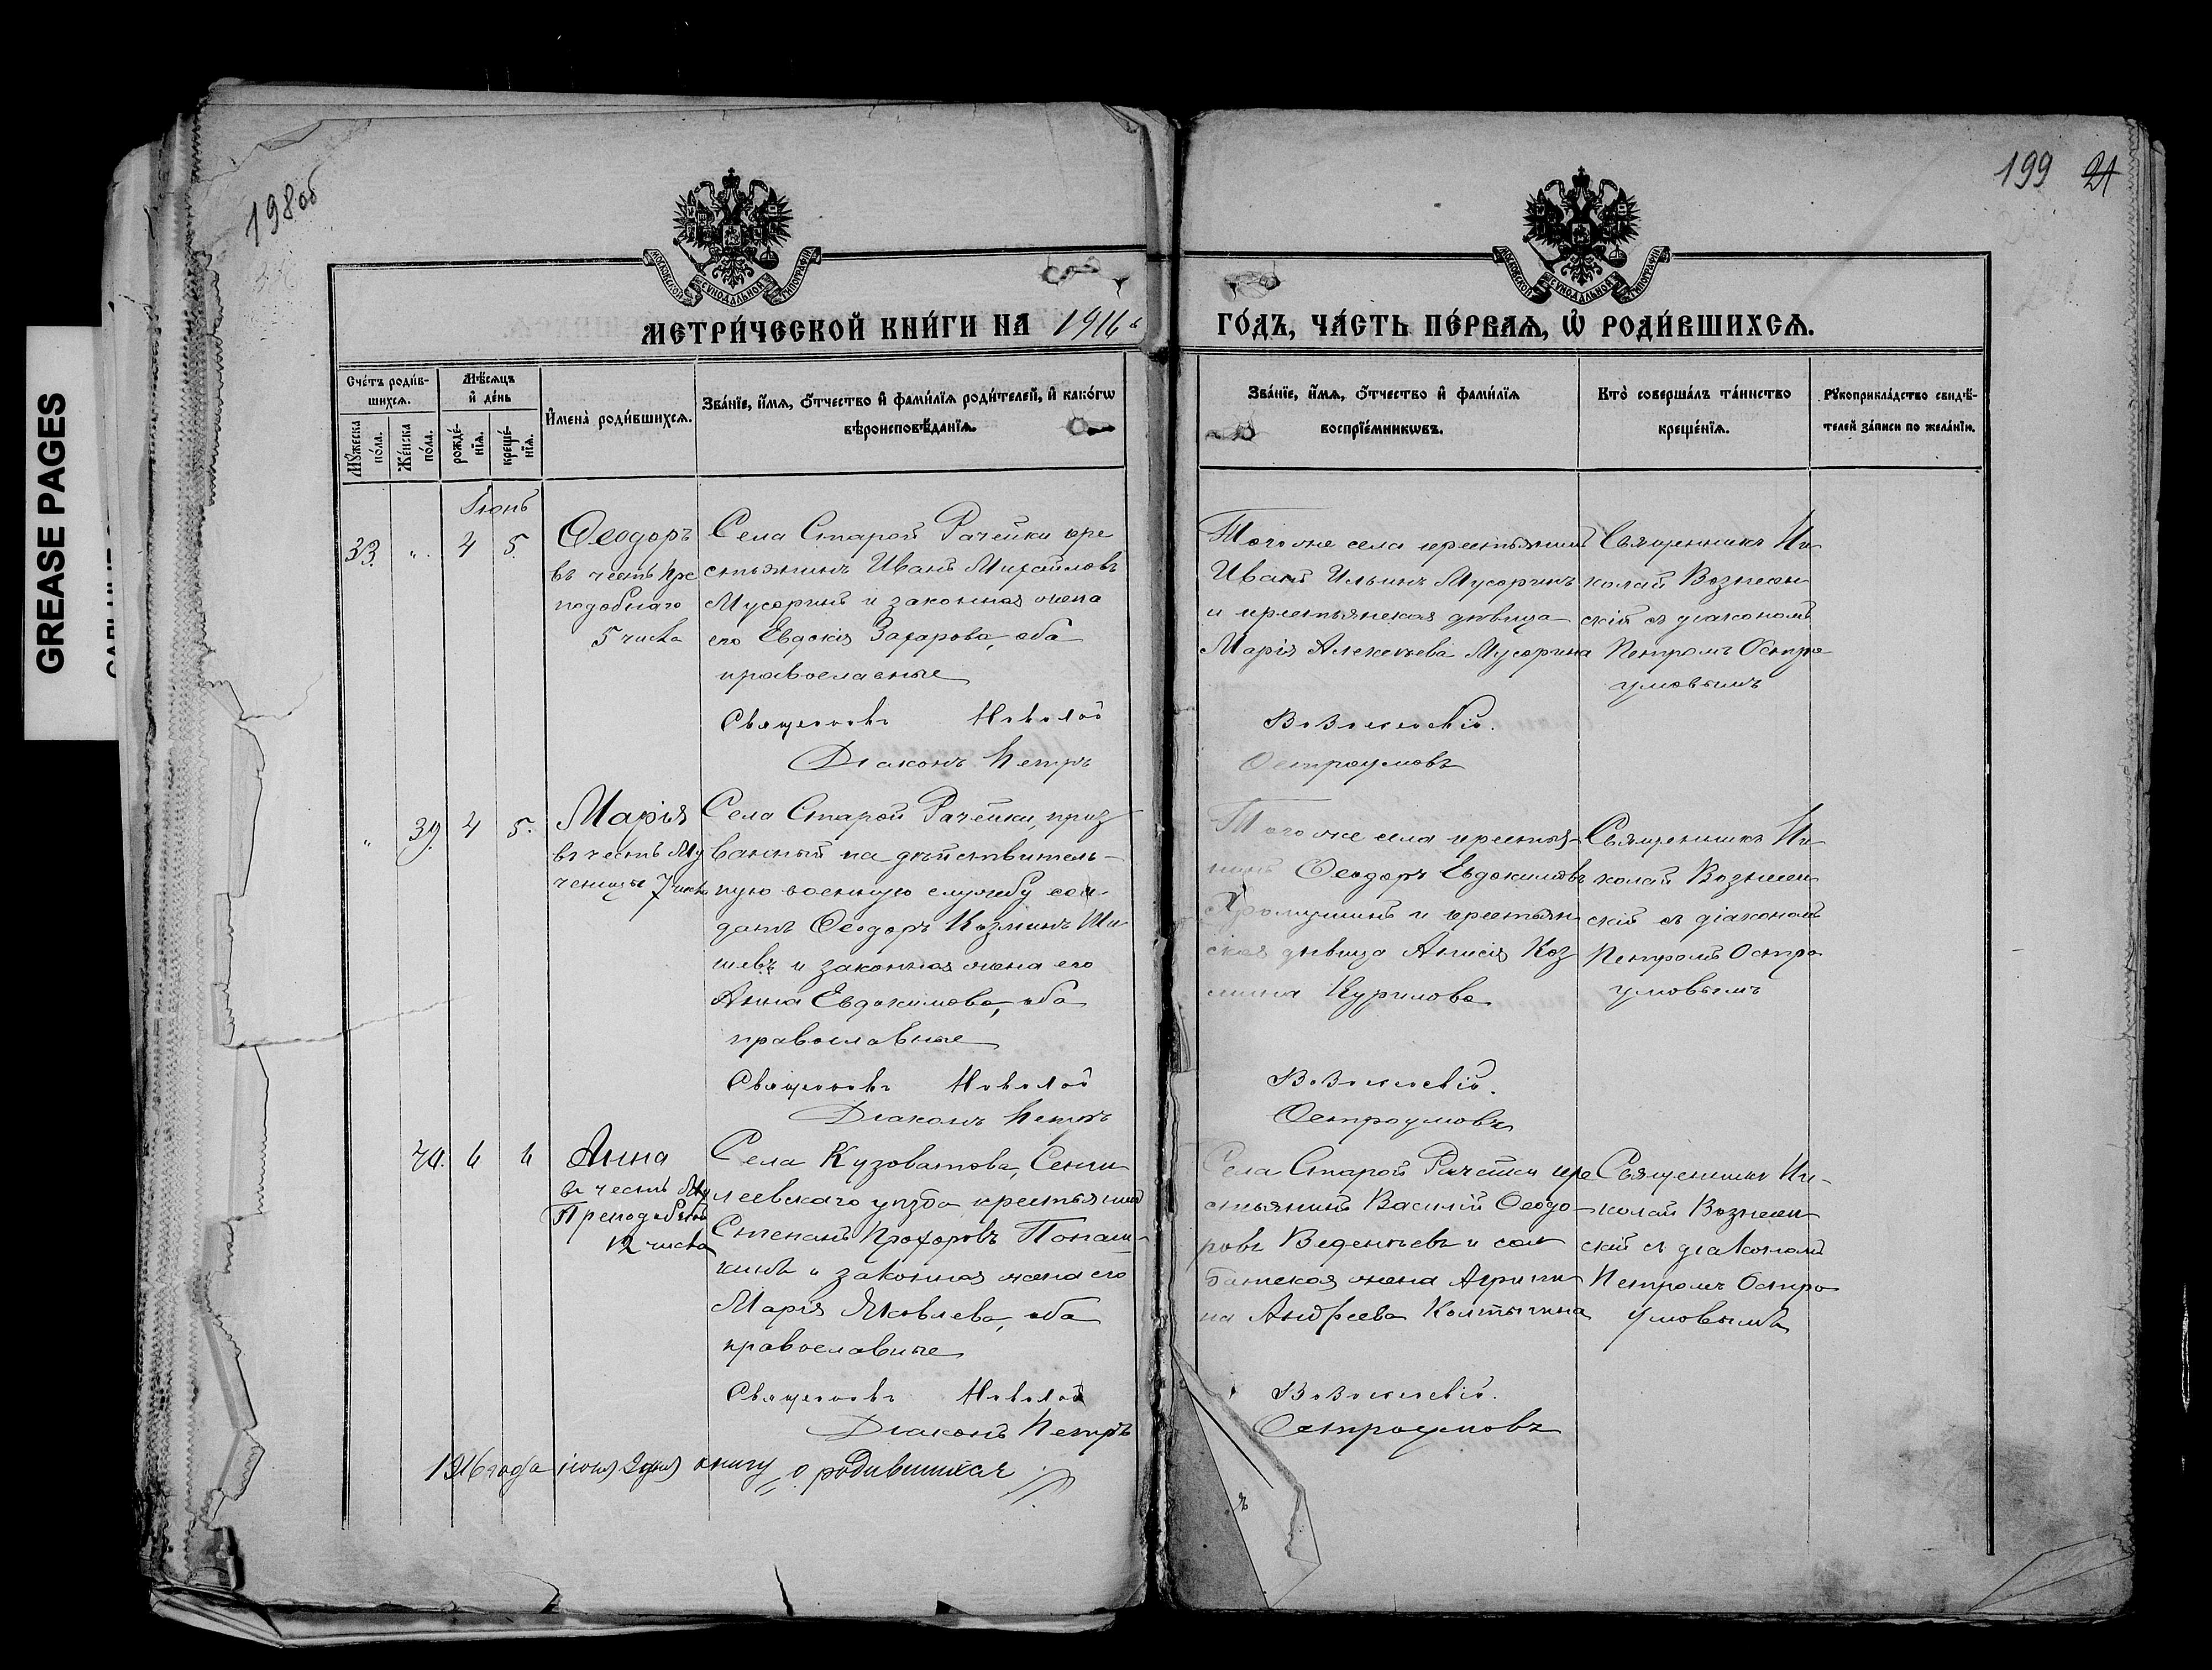 GREASE PAGES
198об
199 21
МОСКОВСКОЙ СѴНОДАЛЬНОЙ ТИПОГРАФІИ
МОСКОВСКОЙ СѴНОДАЛЬНОЙ ТИПОГРАФІИ
МЕТРИ́ЧЕСКОЙ КНИ́ГИ НА 1916
ГО́ДЪ, ЧА́СТЬ ПЕ́РВАѦ, Ѡ҆ РОДИ́ВШИХСѦ.
Сче́тъ роди́в-
шихсѧ.
Мѣ́сѧцъ
и҆ де́нь
Мꙋ́жеска
по́ла.
Же́нска
по́ла.
рожде́-
нїѧ.
креще́-
нїѧ.
И҆мена̀ роди́вшихсѧ.
Зва́нїе, и҆́мѧ, ѻ҆́тчество и҆ фамі́лїѧ роди́телей, и҆ како́гѡ
вѣроисповѣ́данїѧ.
Зва́нїе, и҆́мѧ, ѻ҆́тчество и҆ фамі́лїѧ
воспрїе́мникѡвъ.
Кто̀ соверша́лъ та́инство
креще́нїѧ.
Рꙋкоприкла́дство свидѣ́-
телей за́писи по жела́нїю.
Іюнь
33. „ 4 5.
Ѳеодоръ
въ честь Пре
подобнаго
5 числа
Села Старой Рачейки кре
стьянинъ Иванъ Михайловъ
Мусоринъ и законная жена
его Евдокія Захарова, оба
православные
Священникъ Николай
Діаконъ Петръ
Того же села крестьянинъ
Иванъ Ильинъ Мусоринъ
и крестьянская дѣвица
Марія Алексѣева Мусорина
Вознесенскій.
Остроумовъ
Священникъ Ни
колай Вознесен
скій съ діакономъ
Петромъ Остро
умовымъ
„ 39. 4 5.
Марія
въ честь Му
ченицы 7 числа
Села Старой Рачейки, приз
ванный на дѣйствитель-
ную военную службу сол
датъ Ѳеодоръ Козминъ Ши
шевъ и законная жена его
Анна Евдокимова, оба
православные
Священникъ Николай
Діаконъ Петръ
Того же села крестья-
нинъ Ѳеодоръ Евдокимовъ
и крестьян
ская дѣвица Анисія Коз
мина Курилова
Вознесенскій.
Остроумовъ
Священникъ Ни
колай Вознесен
скій съ діакономъ
Петромъ Остро
умовымъ
40. 6 6
Анна
въ честь
Преподобной
12 числа
Села Кузоватова, Сенги
леевскаго уѣзда крестьянинъ
Степанъ Прохоровъ
и законная жена его
Марія Яковлева, оба
православные
Священникъ Николай
Діаконъ Петръ
Села Старой Рачейки кре
стьянинъ Василій Ѳеодо-
ровъ Веденѣевъ и сол
датская жена Агрипи
на Андреева Колтыгина
Вознесенскій.
Остроумовъ
Священникъ Ни-
колай Вознесен
скій съ діакономъ
Петромъ Остро
умовымъ
1916 года іюня 9 дня книгу о родившихся